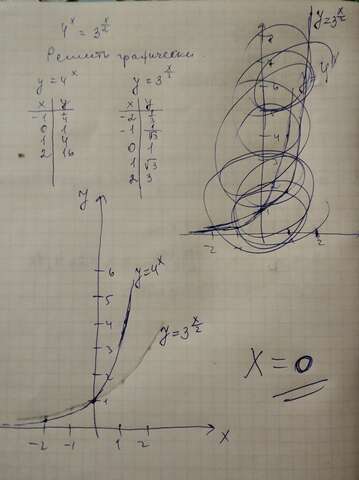 4^x = 3^(x/2)
Решить графически
y = 4^x
y = 3^(x/2)
x | y
-1 | 1/4
0 | 1
1 | 4
2 | 16
x | y
-2 | 1/3
-1 | 1/√3
0 | 1
1 | √3
2 | 3
y = 3^(x/2)
4^x
6
4
-2
2
y
6
5
4
3
2
1
-2 -1 1 2
x
y = 4^x
y = 3^(x/2)
X = 0